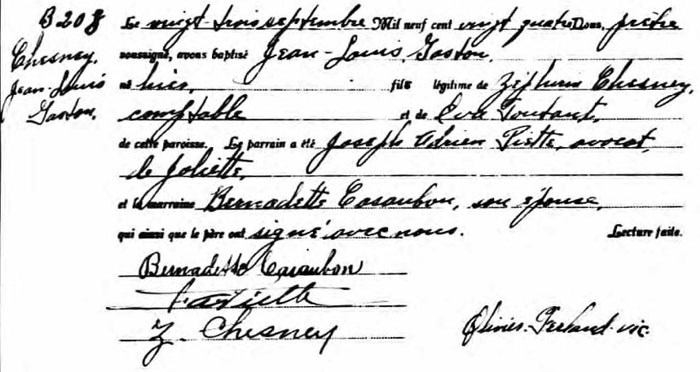 B208
Chesney,
Jean-Louis
Gaston.
Le vingt trois septembre Mil neuf cent vingt quatre Nous, prêtre
soussigné, avons baptisé Jean-Louis Gaston,
né hier, fils légitime de Zéphirin Chesney,
comptable et de Eva Toutant,
de cette paroisse. Le parrain a été Joseph Adrien Piette, avocat,
de Joliette,
et la marraine Bernadette Casaubon, son épouse,
qui ainsi que le père ont signé avec nous. Lecture faite.
Bernadette Casaubon
Z. Chesney
Olivier Ferland vic.